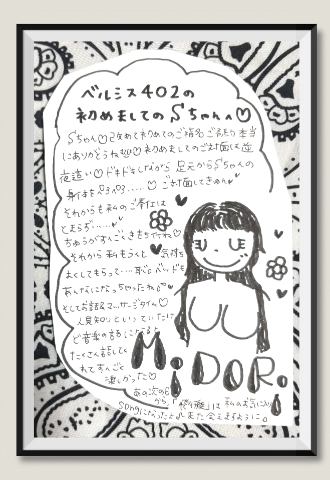 ベルミス402の
初めましてのSちゃんへ♡
Sちゃん♡改めて初めてのご指名 本当
にありがとうね♡ 初めましてのご対面は逆
夜這い♡ ドキドキしながら 足元からSちゃんの
身体を ♡ご対面してきゅん
それからも私のご奉仕は
とまらず
ちゅうがすんごくきもち
それから 私もうんと 気持ち
よくしてもらって
あんなになっちゃったね
そしてお話&マッサージタイム♡
人見知りといっていたけ
ど音楽の話になると
たくさん話してく
れてすんごく
嬉しかった♡
あの次の日
から、「 」は 私のお気に入り
songになったよ♪また会えますように。
MiDORi